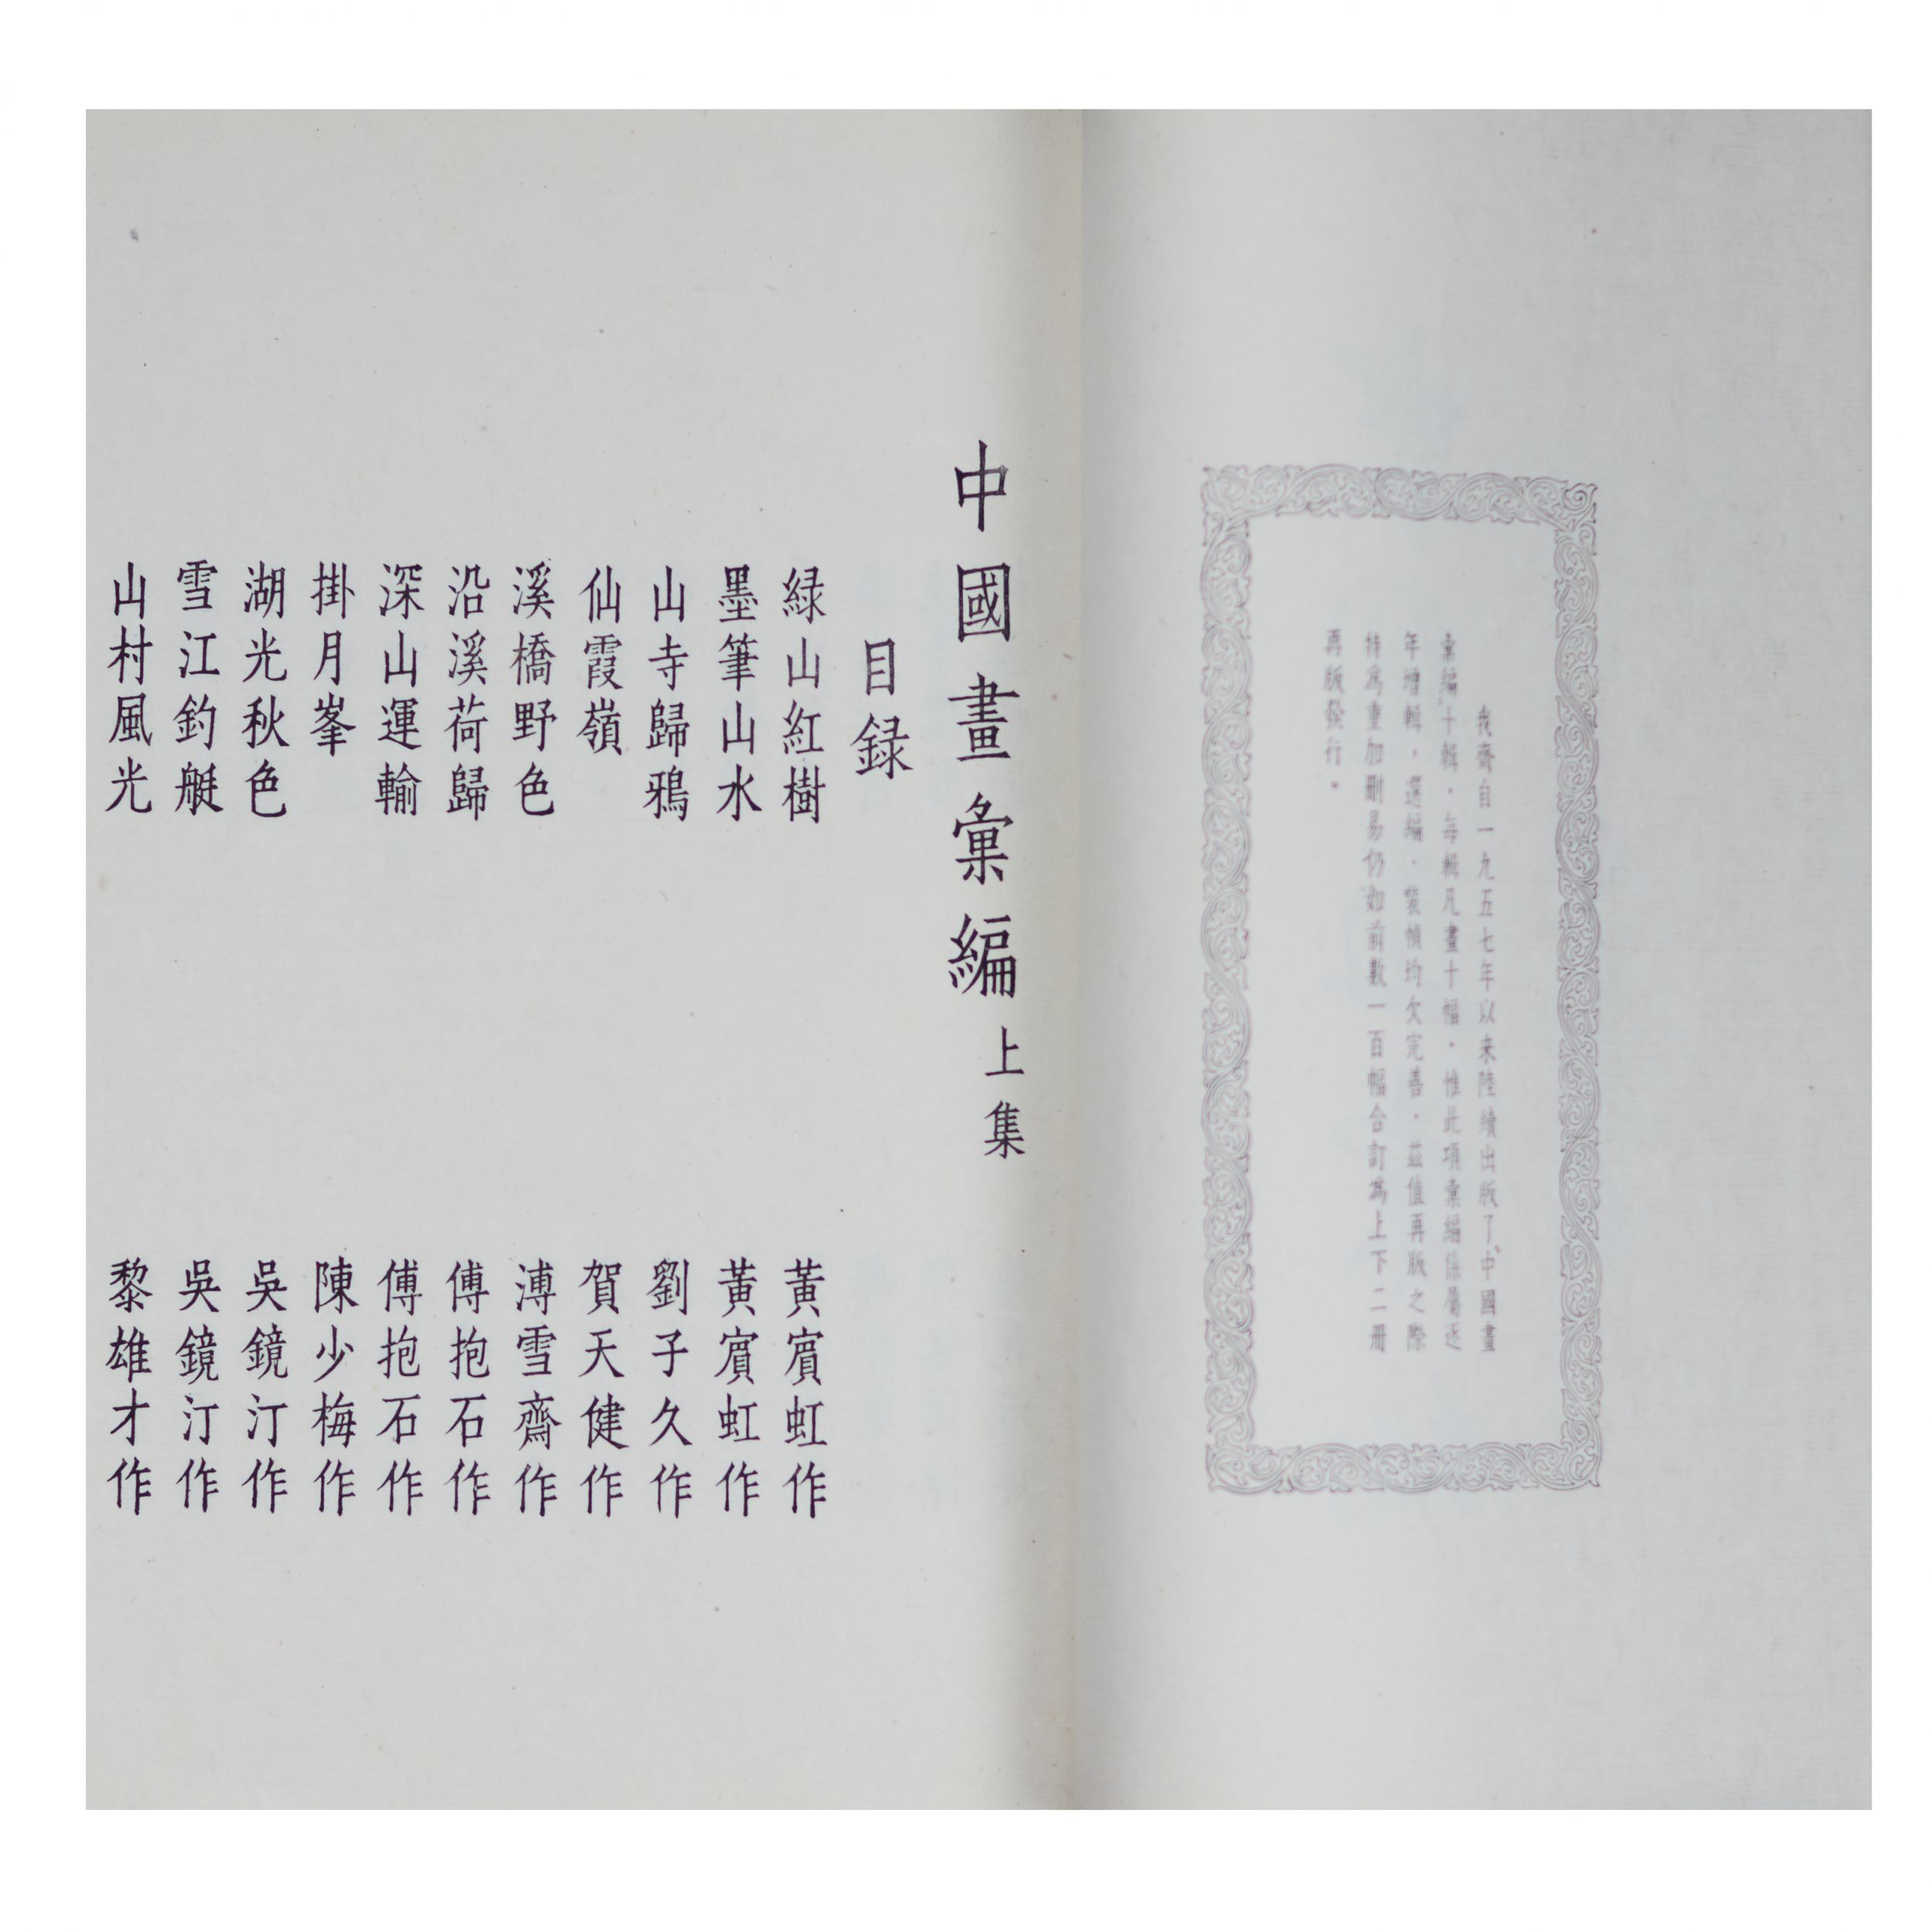 我齋自一九五七年以来陸續出版了、中國畫
彙編十輯，每輯凡畫十幅，惟此項彙編係屬逐
年增輯，選編、裝幀均欠完善，茲值再版之際
特爲重加刪易仍如前數一百幅合訂爲上下二册
再版發行。
中國畫彙編 上集
目録
緑山紅樹 黃賓虹作
墨筆山水 黃賓虹作
山寺歸鴉 劉子久作
仙霞嶺 賀天健作
溪橋野色 溥雪齋作
沿溪荷歸 傅抱石作
深山運輸 傅抱石作
掛月峯 陳少梅作
湖光秋色 吳鏡汀作
雪江釣艇 吳鏡汀作
山村風光 黎雄才作